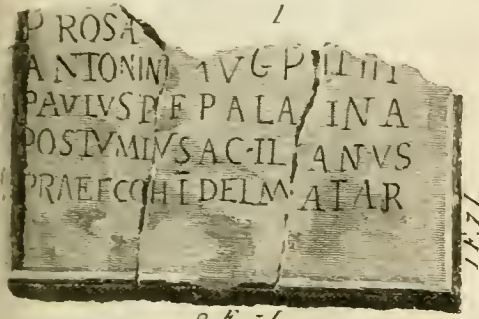 P ROSA
ANTONINI AVG P
PAVLVS P F PALA INA
POSTVMIVS AC·IL ANVS
PRAEF COH I DELM ATAR